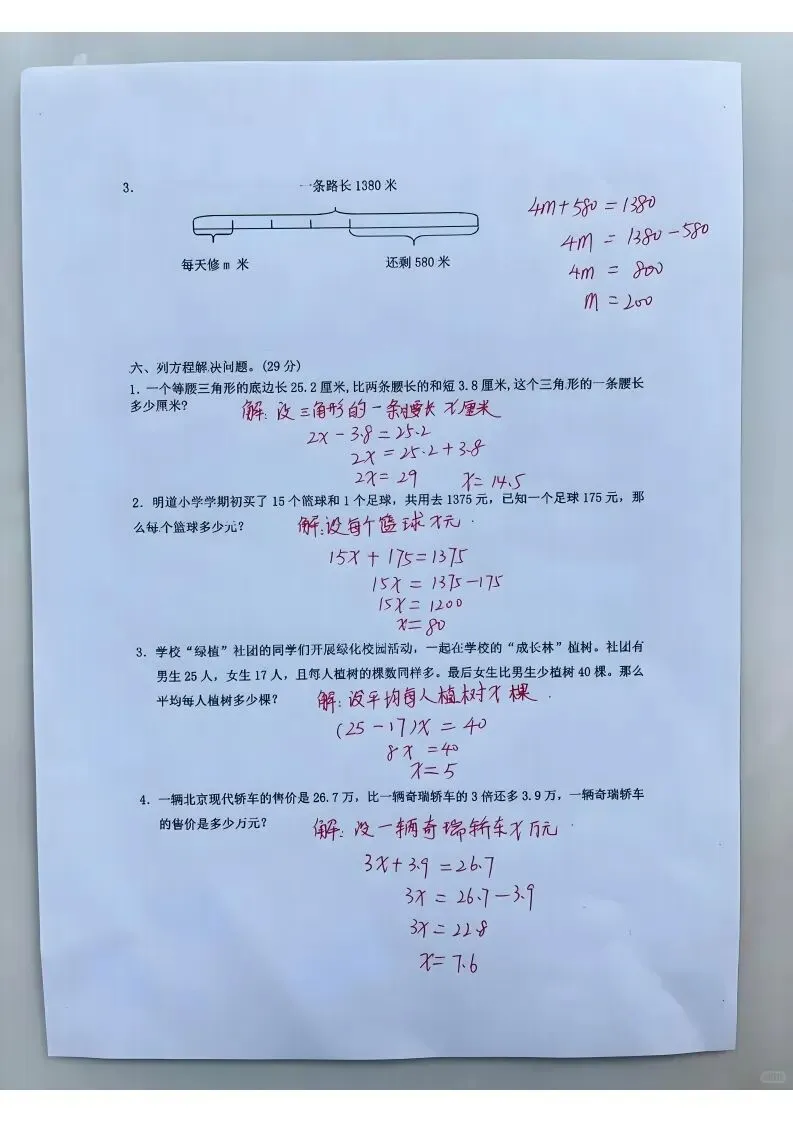 3. 一条路长1380米
每天修m 米 还剩580米
4m+580=1380
4m=1380-580
4m=800
m=200
六、列方程解决问题。(29分)
1.一个等腰三角形的底边长25.2厘米,比两条腰长的和短3.8厘米,这个三角形的一条腰长
多少厘米?
解:设三角形的一条腰长x厘米
2x-3.8=25.2
2x=25.2+3.8
2x=29 x=14.5
2.明道小学学期初买了15个篮球和1个足球,共用去1375元,已知一个足球175元,那
么每个篮球多少元?
解:设每个篮球x元.
15x+175=1375
15x=1375-175
15x=1200
x=80
3.学校“绿植”社团的同学们开展绿化校园活动,一起在学校的“成长林”植树。社团有
男生25人,女生17人,且每人植树的棵数同样多。最后女生比男生少植树40棵。那么
平均每人植树多少棵?
解:设平均每人植树x棵.
(25-17)x=40
8x=40
x=5
4.一辆北京现代轿车的售价是26.7万,比一辆奇瑞轿车的3倍还多3.9万,一辆奇瑞轿车
的售价是多少万元?
解:设一辆奇瑞轿车x万元.
3x+3.9=26.7
3x=26.7-3.9
3x=22.8
x=7.6